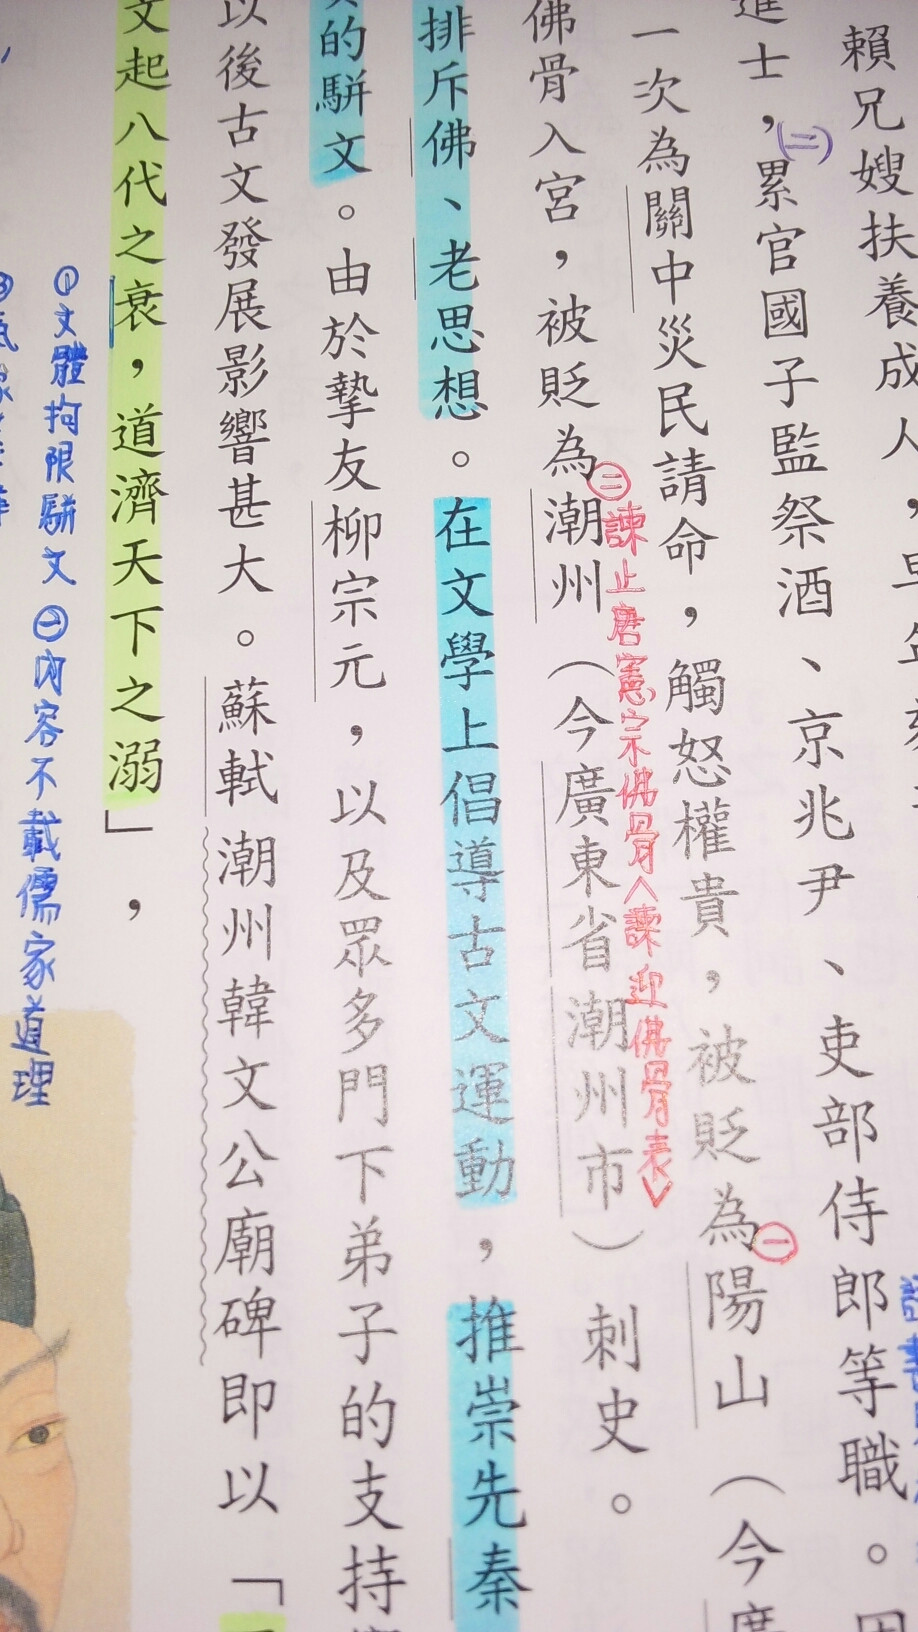 賴兄嫂扶養成人，早年刻
進士，累官國子監祭酒、京兆尹、吏部侍郎等職。因
(二)
一次為關中災民請命，觸怒權貴，被貶為陽山（今廣
㊀
㊁諫止唐憲宗佛骨<諫迎佛骨表>
佛骨入宮，被貶為潮州（今廣東省潮州市）刺史。
排斥佛、老思想。在文學上倡導古文運動，推崇先秦
的駢文。由於摯友柳宗元，以及眾多門下弟子的支持
以後古文發展影響甚大。蘇軾潮州韓文公廟碑即以「
文起八代之衰，道濟天下之溺」，
①文體拘限駢文㊁內容不載儒家道理
③